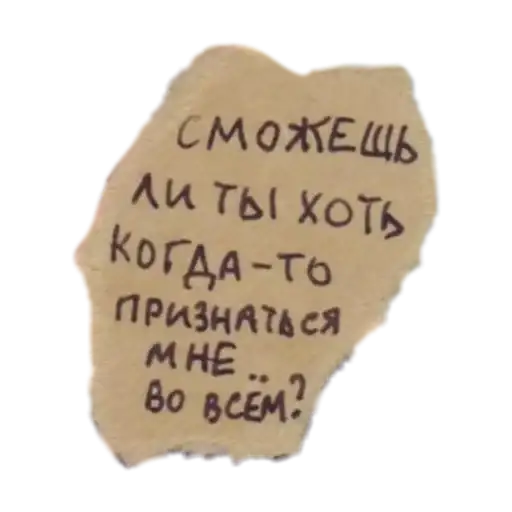 СМОЖЕШЬ
ЛИ ТЫ ХОТЬ
КОГДА-ТО
ПРИЗНАТЬСЯ
МНЕ..
ВО ВСЁМ?